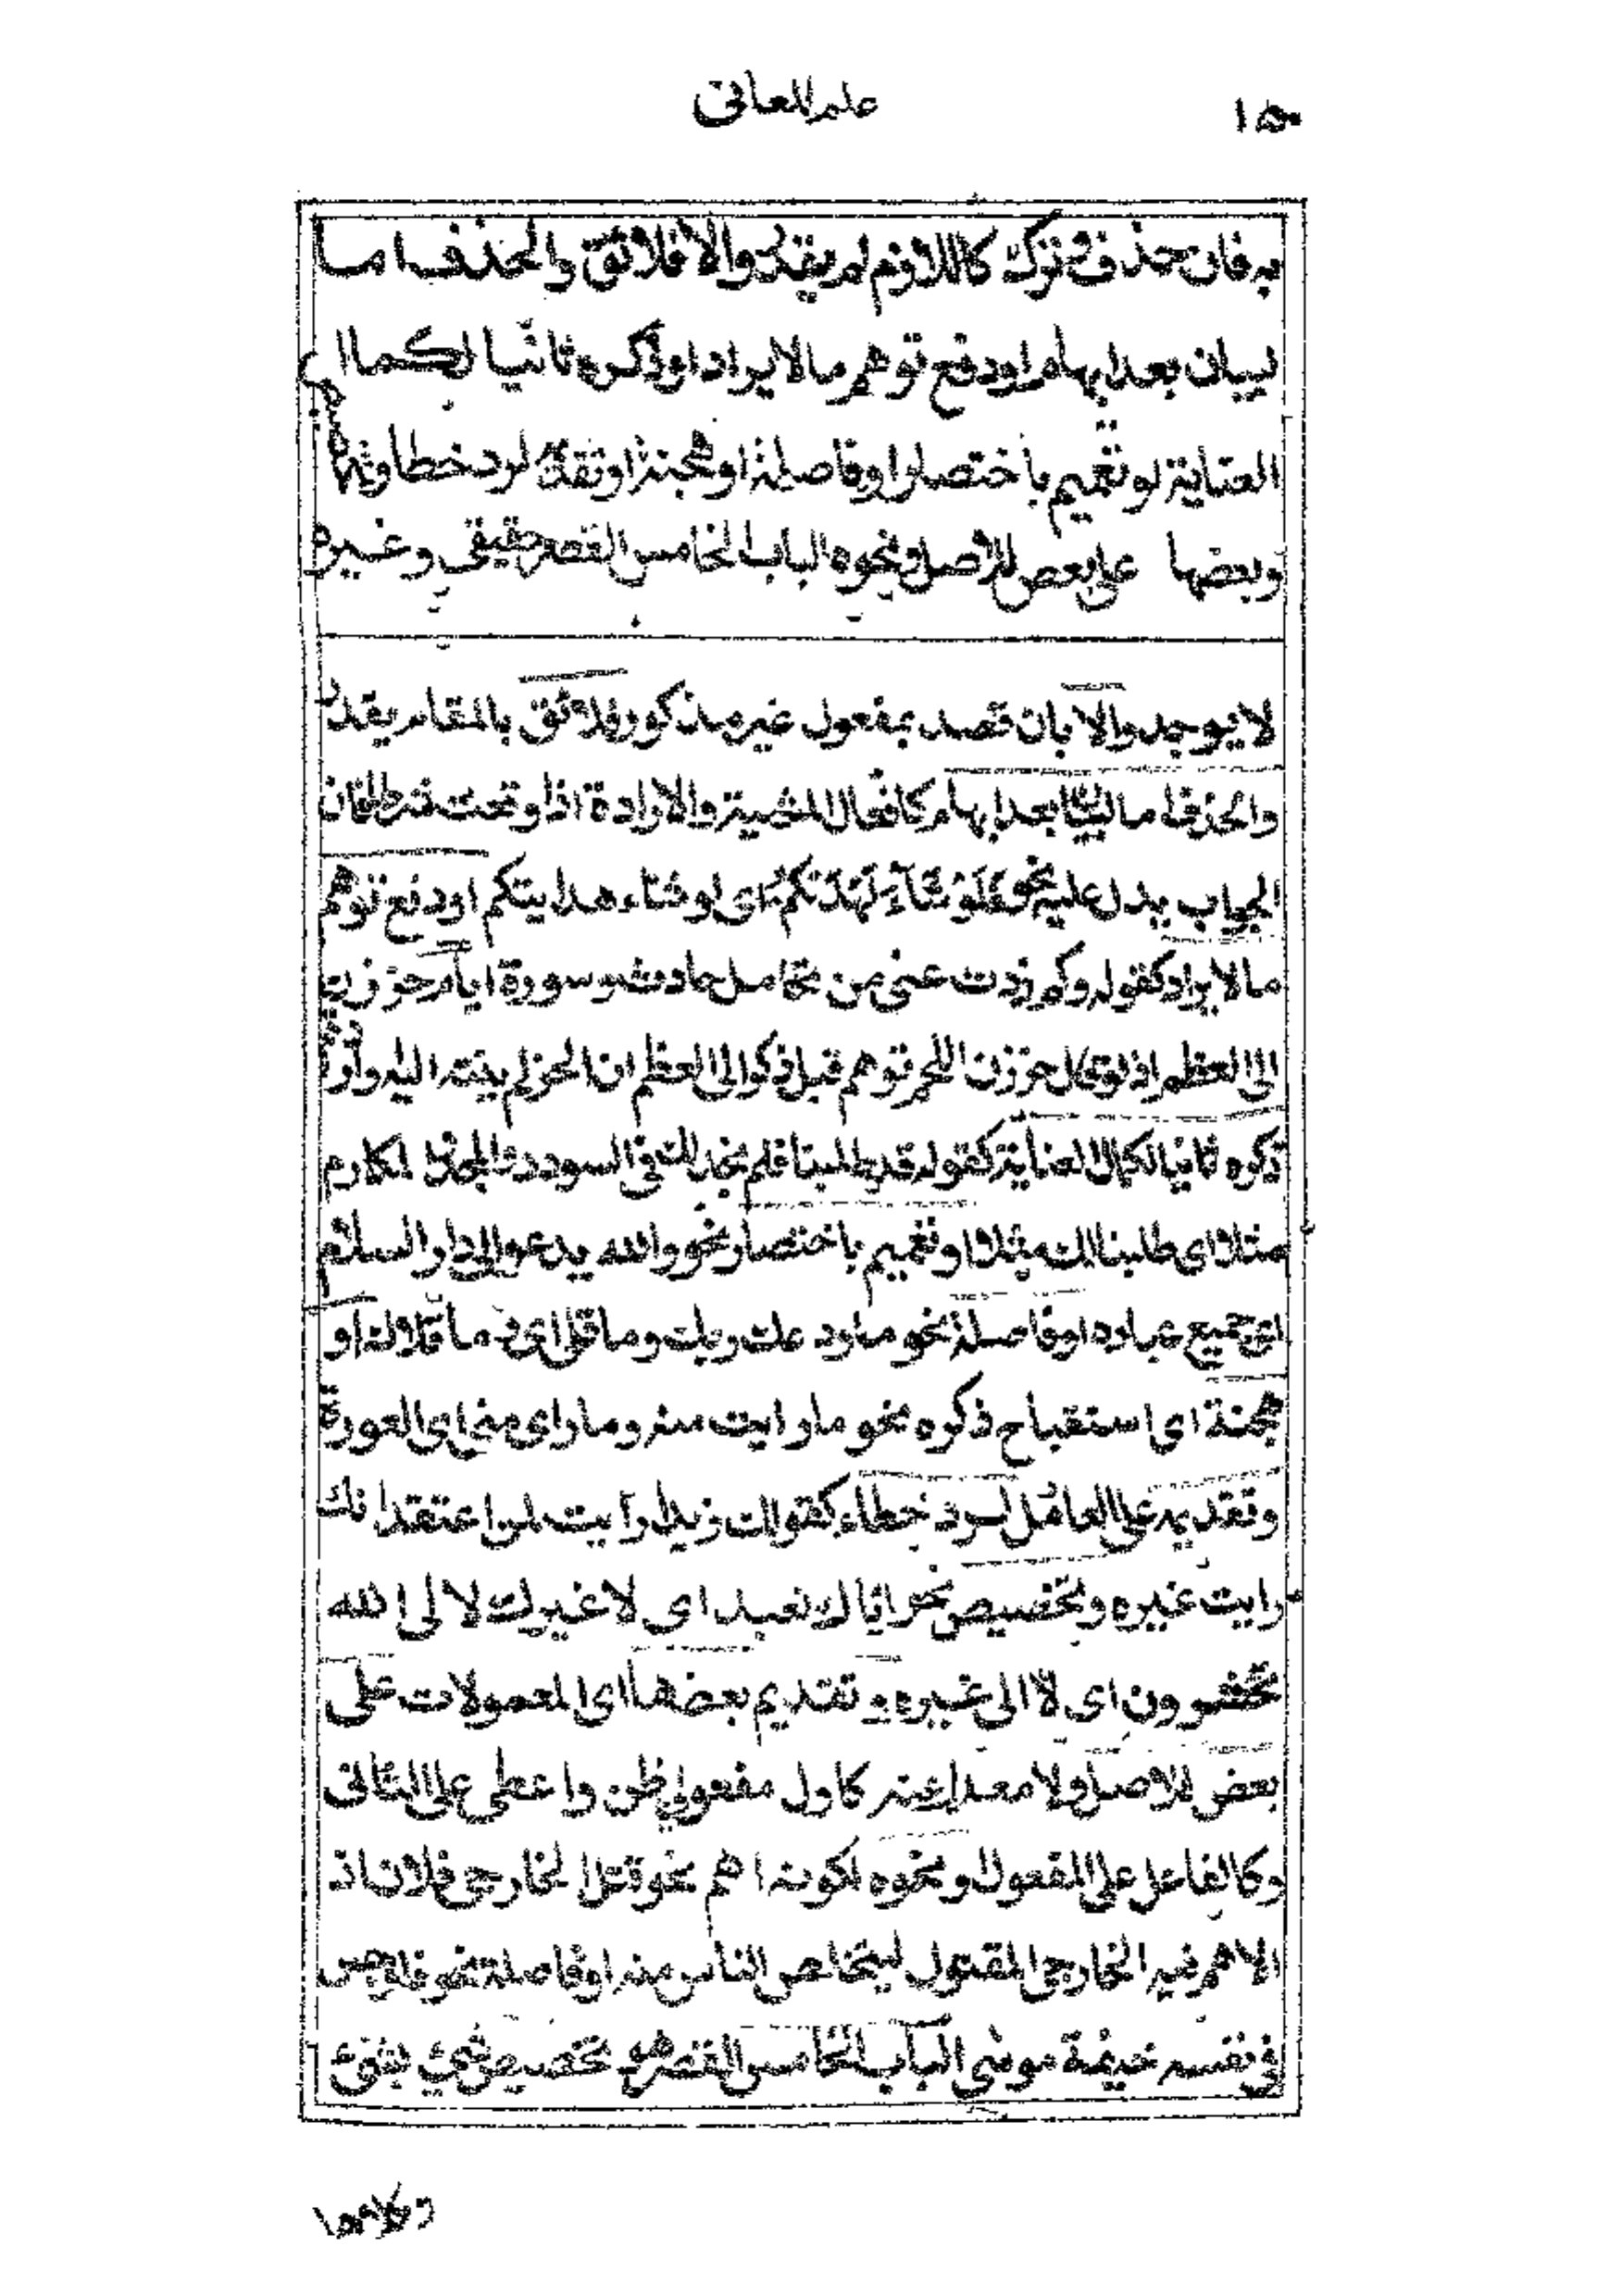 ١٥٠
علم المعاني
به فان حذف وترك كاللازم لم يقدر والا فلائق والحذف اما
لبيان بعد ابهام او دفع توهم ما لا يراد او ذكره ثانيا لكمال
العناية او تعميم باختصار او فاصلة او هجنة او تقديمه لرد خطا وتخصيص
وبعضها على بعض للاصل ونحوه الباب الخامس القصر حقيقي وغيره
لا يوجد والا بان قصد بمفعول غير مذكور فلائق بالمقام يقدر
والحذف اما لبيان بعد ابهام كافعال المشية والارادة اذا وقعت شرطا فان
الجواب يدل عليه نحو فَلَوْ شَآءَ لَهَدٰىكُمْ اى لو شاء هدايتكم او دفع توهم
ما لا يراد كقوله وكم ذدت عنى من تحامل حادث وسورة ايام حززن
الى العظم اذ لو قال حززن اللحم توهم قبل ذكر الى العظم ان الحز لم ينته اليه واو
ذكره ثانيا لكمال العناية كقوله قد طلبنا فلم نجد لك فى السودد والمجد والمكارم
مثلا اى طلبنا لك مثلا او تعميم باختصار نحو والله يدعو الى دار السلام
اى جميع عباده او فاصلة نحو ما ودعك ربك وما قلى اى وما قلاك او
هجنة اى استقباح ذكره نحو ما رايت منه وما راى منى اى العورة
وتقديمه على العامل لرد خطاء كقولك زيدا رايت لمن اعتقد انك
رايت غيره وتخصيص نحو اياك نعبد اى لا غيرك لا لى الله
تحشرون اى لا الى غيره و تقديم بعضها اى المعمولات على
بعض للاصل ولا معدل عنه كاول مفعولى ظن واعطى على الثانى
وكالفاعل على المفعول ونحوه لكونه اهم نحو قتل الخارجى فلان اذ
الاهم فيه الخارجى المقتول ليتخلص الناس منه او فاصلة نحو فاوجس
فى نفسه خيفة موسى الباب الخامس القصر هو تخصيص شىء بشىء